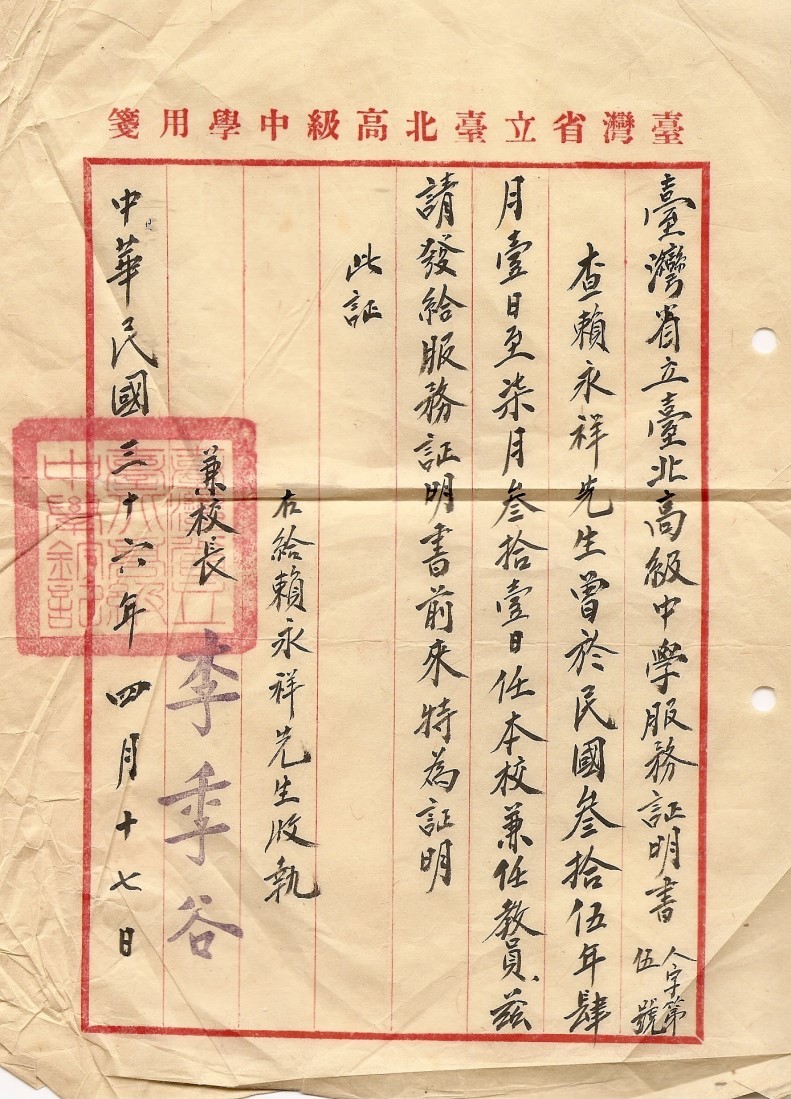 臺灣省立臺北高級中學用箋
臺灣省立臺北高級中学服務証明書 人字第伍號
查賴永祥先生曾於民國叁拾伍年肆
月壹日至柒月叁拾壹日任本校兼任教員、茲
請發給服務証明書前來特為証明
此証
右給賴永祥先生收執
兼校長 李季谷
中華民國三十六年四月十七日
臺灣省立
臺北高級
中學鈐記